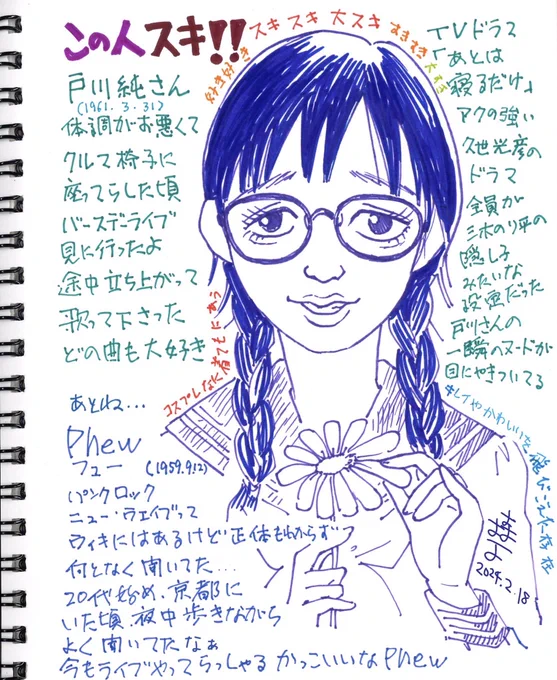 この人スキ!!
スキ スキ 大スキ
好き好き
すきすき大好
戸川純さん
(1961.3.31)
体調がお悪くて
クルマ椅子に
座ってらした頃
バースデーライブ
見に行ったよ
途中立ち上がって
歌って下さった
どの曲も大好き
TVドラマ
「あとは
寝るだけ」
アクの強い
久世光彦の
ドラマ
全員が
三木のり平の
隠し子
みたいな
設定だった
戸川さんの
一瞬のヌードが
目にやきついてる
コスプレなに着てもにあう
キレイやかわいいを飛びこえた存在
あとね…
Phew
フュー (1959.9.12)
パンクロック
ニュー・ウェイブって
ウィキにはあるけど正体もわからずっ
何となく聞いてた…
20代始め、京都に
いた頃、夜中歩きながら
よく聞いてたなぁ
今もライブやってらっしゃる かっこいいなPhew
2025.2.18